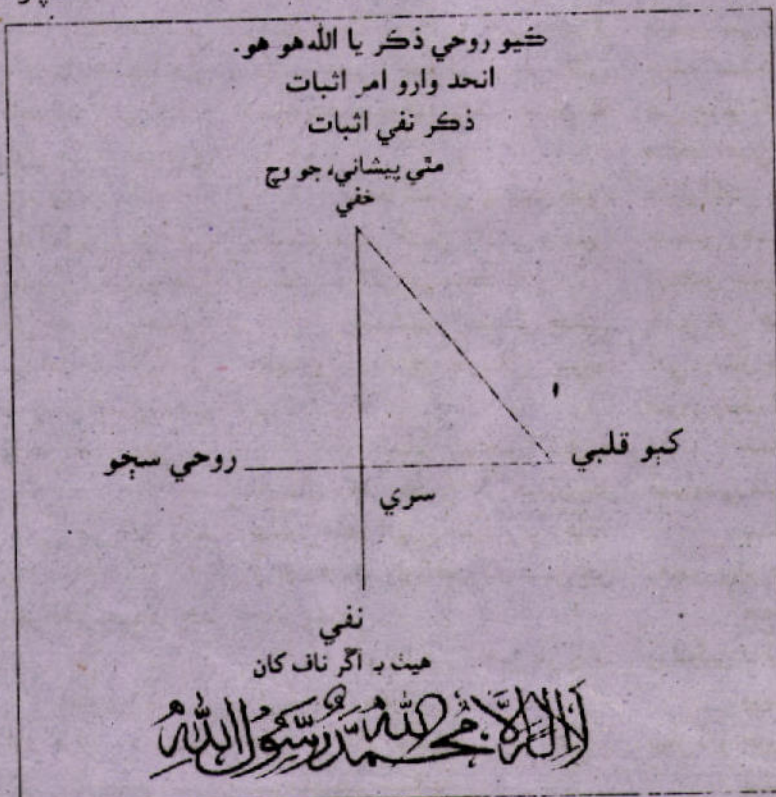 ڪيو روحي ذڪر يا الله هو هو.
انحد وارو امر اثبات
ذڪر نفي اثبات
مٿي پيشاني، جو وچ
خفي
کٻو قلبي
روحي سڄو
سري
نفي
هيٺ ٻه آڱر ناف کان
لَا اِلٰهَ اِلَّا اللّٰهُ مُحَمَّدٌ رَّسُوْلُ اللّٰهِ